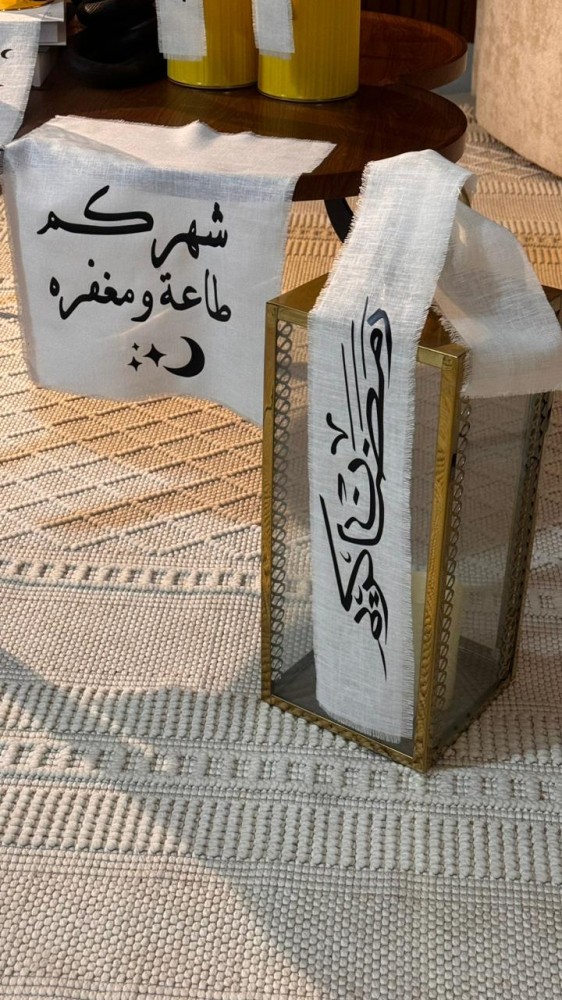 شهركم
طاعة ومغفره
رمضان كريم